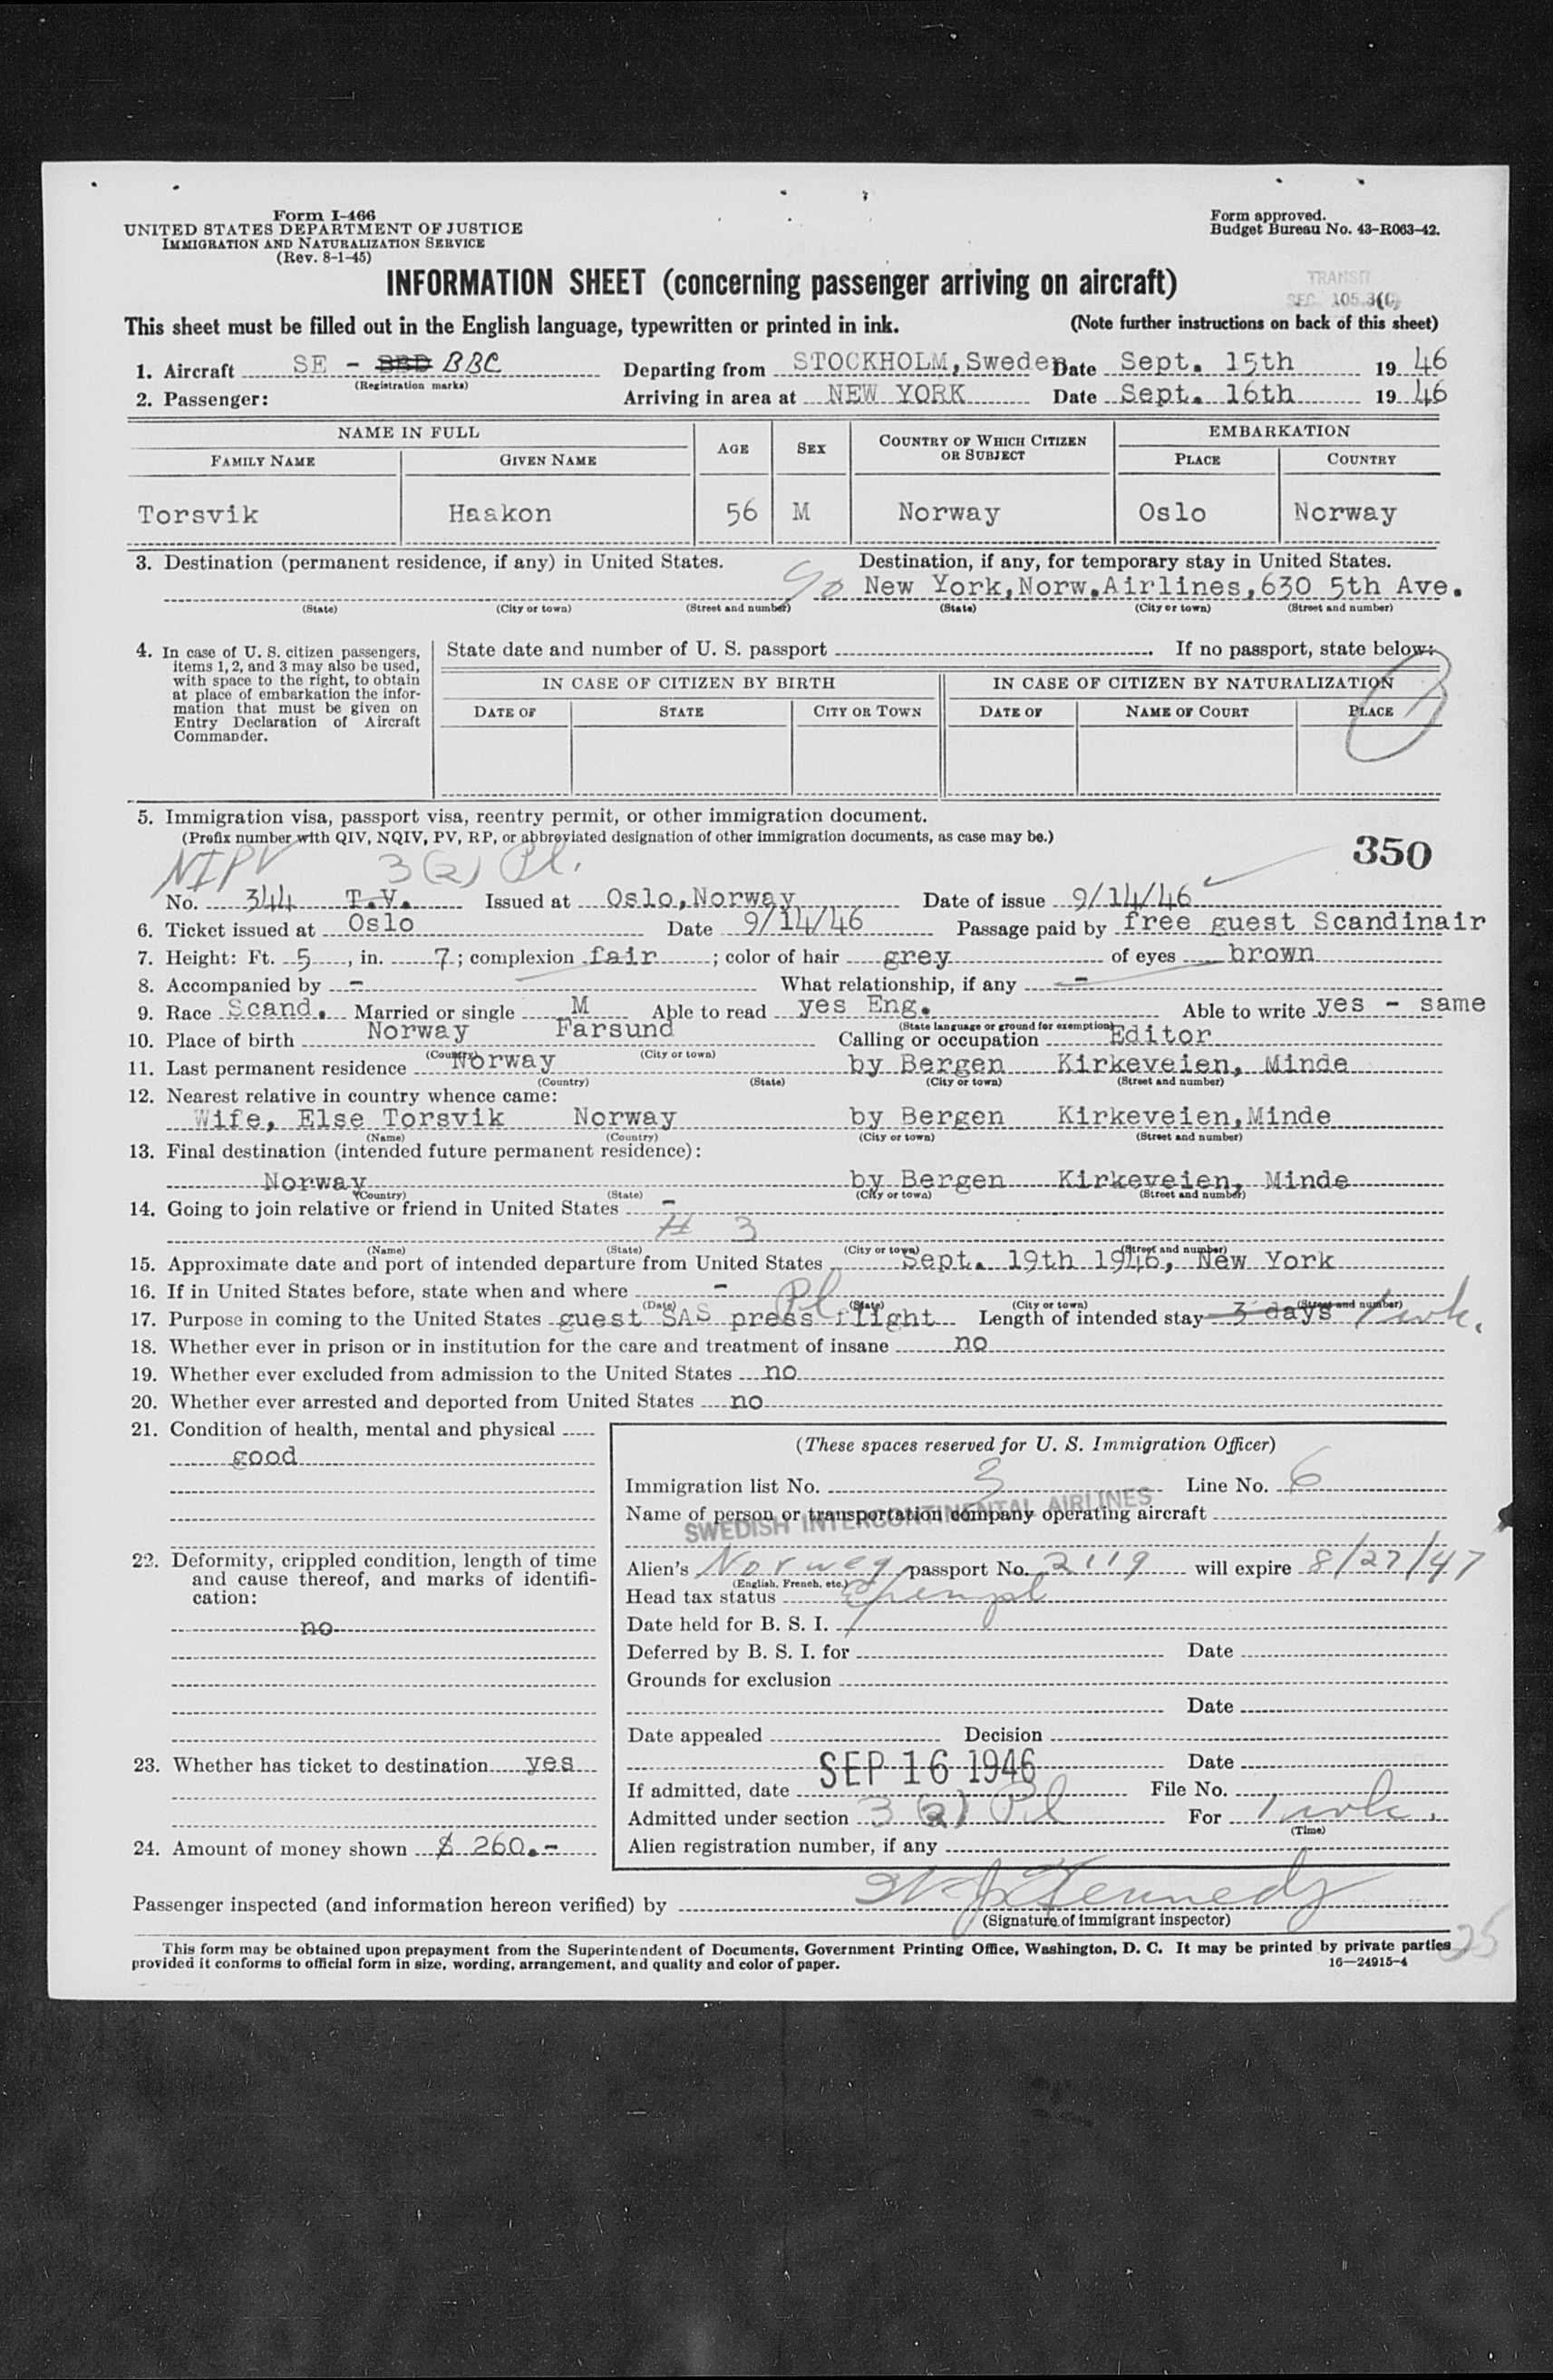 Form I-466
UNITED STATES DEPARTMENT OF JUSTICE
IMMIGRATION AND NATURALIZATION SERVICE
(Rev. 8-1-45)
Form approved.
Budget Bureau No. 43-R063-42.
INFORMATION SHEET (concerning passenger arriving on aircraft)
TRANSIT
SEC. 105.3(C)
This sheet must be filled out in the English language, typewritten or printed in ink. (Note further instructions on back of this sheet)
1. Aircraft SE - BBD BBC Departing from STOCKHOLM, Sweden Date Sept. 15th 1946
(Registration marks)
2. Passenger: Arriving in area at NEW YORK Date Sept. 16th 1946
NAME IN FULL AGE SEX COUNTRY OF WHICH CITIZEN OR SUBJECT EMBARKATION
FAMILY NAME GIVEN NAME PLACE COUNTRY
Torsvik Haakon 56 M Norway Oslo Norway
3. Destination (permanent residence, if any) in United States. Destination, if any, for temporary stay in United States.
c/o New York, Norw. Airlines, 630 5th Ave.
(State) (City or town) (Street and number) (State) (City or town) (Street and number)
4. In case of U. S. citizen passengers, items 1, 2, and 3 may also be used, with space to the right, to obtain at place of embarkation the information that must be given on Entry Declaration of Aircraft Commander.
State date and number of U. S. passport . If no passport, state below:
IN CASE OF CITIZEN BY BIRTH IN CASE OF CITIZEN BY NATURALIZATION
DATE OF STATE CITY OR TOWN DATE OF NAME OF COURT PLACE
5. Immigration visa, passport visa, reentry permit, or other immigration document.
(Prefix number with QIV, NQIV, PV, RP, or abbreviated designation of other immigration documents, as case may be.)
350
NIPV 3(2) Pl.
No. 344 T.V. Issued at Oslo, Norway Date of issue 9/14/46
6. Ticket issued at Oslo Date 9/14/46 Passage paid by free guest Scandinair
7. Height: Ft. 5, in. 7; complexion fair; color of hair grey of eyes brown
8. Accompanied by - What relationship, if any -
9. Race Scand. Married or single M Able to read yes Eng. Able to write yes - same
(State language or ground for exemption)
10. Place of birth Norway Farsund Calling or occupation Editor
(Country) (City or town)
11. Last permanent residence Norway by Bergen Kirkeveien, Minde
(Country) (State) (City or town) (Street and number)
12. Nearest relative in country whence came:
Wife, Else Torsvik Norway by Bergen Kirkeveien, Minde
(Name) (Country) (City or town) (Street and number)
13. Final destination (intended future permanent residence):
Norway by Bergen Kirkeveien, Minde
(Country) (State) (City or town) (Street and number)
14. Going to join relative or friend in United States -
# 3
(Name) (State) (City or town) (Street and number)
15. Approximate date and port of intended departure from United States Sept. 19th 1946, New York
16. If in United States before, state when and where -
(Date) (State) (City or town) (Street and number)
17. Purpose in coming to the United States guest SAS press flight Pl Length of intended stay 3 days 1 wk.
18. Whether ever in prison or in institution for the care and treatment of insane no
19. Whether ever excluded from admission to the United States no
20. Whether ever arrested and deported from United States no
21. Condition of health, mental and physical
good
22. Deformity, crippled condition, length of time and cause thereof, and marks of identification:
no
23. Whether has ticket to destination yes
24. Amount of money shown $ 260.-
(These spaces reserved for U. S. Immigration Officer)
Immigration list No. 3 Line No. 6
Name of person or transportation company operating aircraft
SWEDISH INTERCONTINENTAL AIRLINES
Alien's Norweg passport No. 2119 will expire 8/27/47
(English, French, etc.)
Head tax status Exempt
Date held for B. S. I.
Deferred by B. S. I. for Date
Grounds for exclusion
Date
Date appealed Decision
Date
If admitted, date SEP 16 1946 File No.
Admitted under section 3 (2) Pl For 1 wk.
(Time)
Alien registration number, if any
Passenger inspected (and information hereon verified) by Kennedy
(Signature of immigrant inspector)
This form may be obtained upon prepayment from the Superintendent of Documents, Government Printing Office, Washington, D. C. It may be printed by private parties
provided it conforms to official form in size, wording, arrangement, and quality and color of paper. 16—24915-4
25